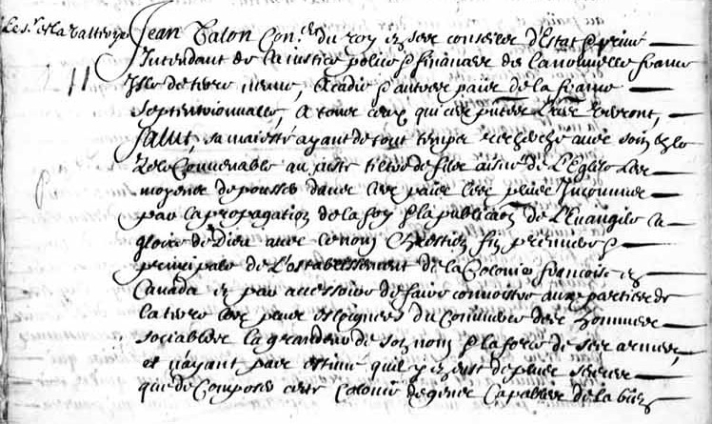 Le Sr. de la Vallterye
Jean Talon Con.er du roy en ses conseilz d'Estat & privé
Intendant de la justice police & finances de la nouvelle france
Isle de terre neuve, Acadie & autres pais de la france
septentrionnalle, A tous ceux qui ces pntes Lres verront,
Salut, sa majesté ayant de tout temps recherché avec soin & le
zele Convenable au juste tiltre de fils aisné de L'Eglise Les
moyens de pousser dans les pais les plus Inconnus
par la propagation de la foy & la publicaon de L'Evangile la
gloire de Dieu avec le nom Chrestien, fin premiere &
principale de L'establissement de la Colonie françoise en
Canada et par accessoire de faire connoistre aux parties de
la terre les plus esloignées du Commerce des hommes
sociables la grandeur de son nom & la force de ses armes,
et n'ayant pas estimé qu'il y en eust de plus seures
que de Composer cette Colonie de gens Capables de la bien